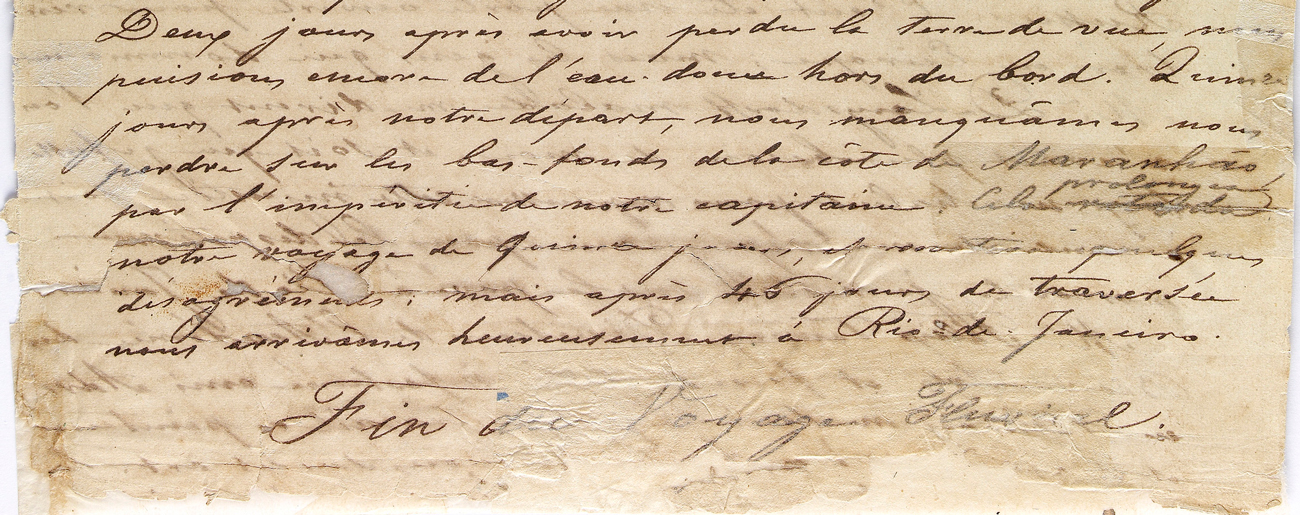 Deux jours après avoir perdu la terre de vue, nous
puisions encore de l'eau douce hors du bord. Quinze
jours après notre départ, nous manquâmes nous
perdre sur les bas-fonds de la côte de Maranhão
prolongea
par l'impéritie de notre capitaine. Cela
notre voyage de quinze jours, et quelques
désagréments; mais après 45 jours de traversée
nous arrivâmes heureusement à Rio de Janeiro.
Fin du Voyage Fluvial.